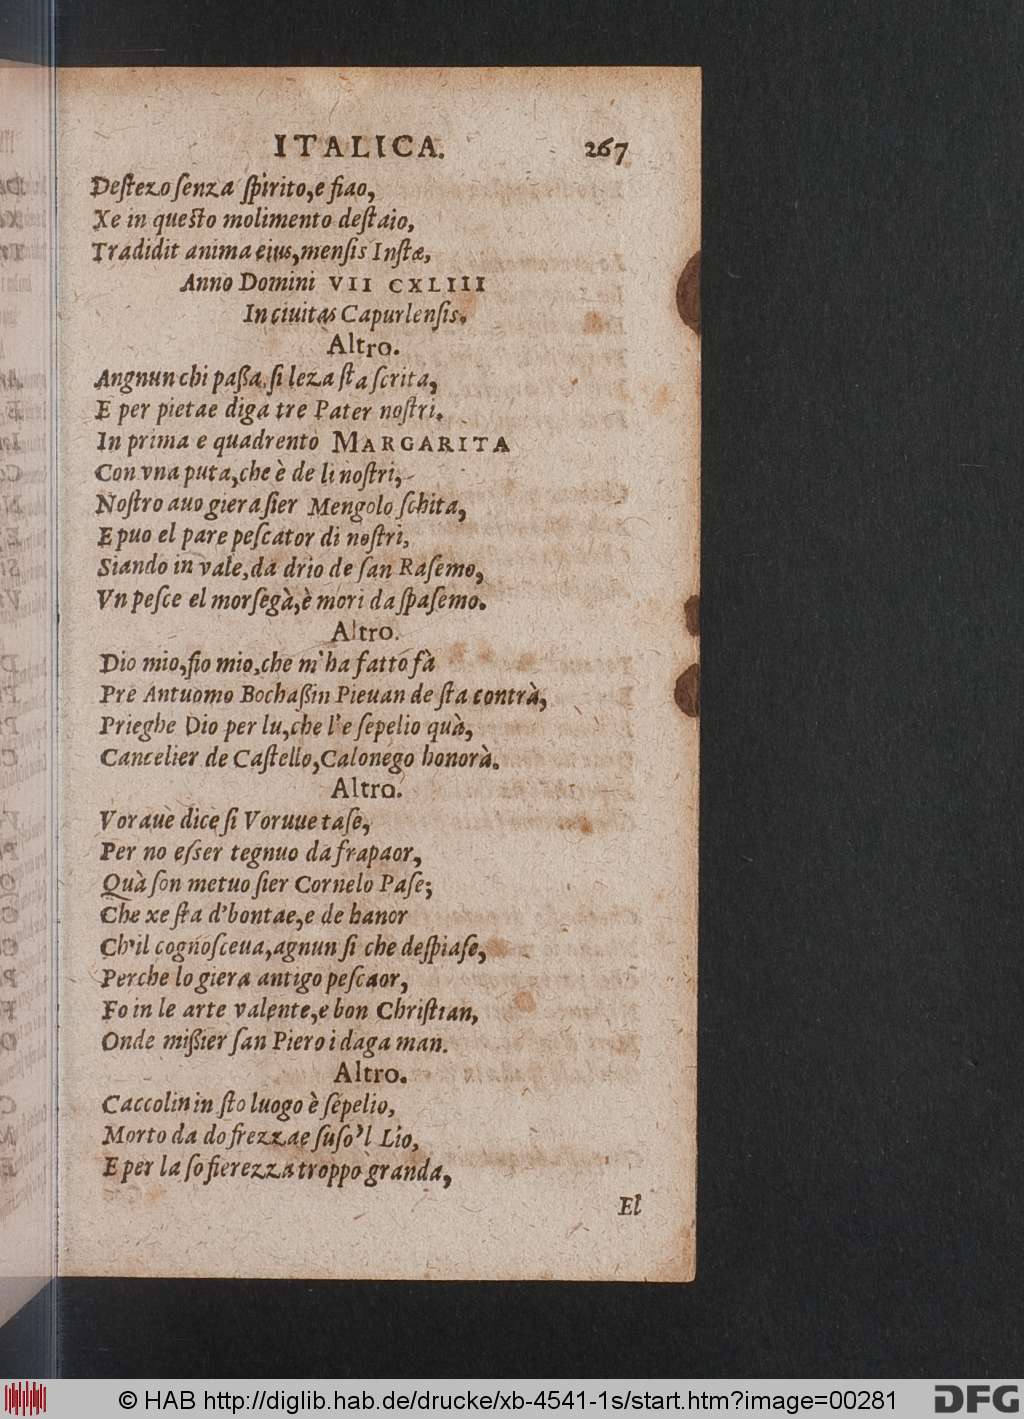 ITALICA. 267
Deſtezo ſenza ſpirito, e fiao,
Xe in queſto molimento deſtaio,
Tradidit anima eius, menſis Inſtæ,
Anno Domini VII CXLIII
In ciuitas Capurlenſis.
Altro.
Angnun chi paßa, ſi leza ſta ſcrita,
E per pietae diga tre Pater noſtri.
In prima e quadrento MARGARITA
Con vna puta, che è de li noſtri,
Noſtro auo giera ſier Mengolo ſchita,
E puo el pare peſcator di noſtri,
Siando in vale, da drio de ſan Raſemo,
Vn peſce el morſegà, è mori da ſpaſemo.
Altro.
Dio mio, ſio mio, che m'ha fatto fà
Pre Antuomo Bochaßin Pieuan de ſta contrà,
Prieghe Dio per lu, che l'e ſepelio quà,
Cancelier de Caſtello, Calonego honorà.
Altro.
Voraue dice ſi Voruue taſe,
Per no eſser tegnuo da frapaor,
Quà ſon metuo ſier Cornelo Paſe;
Che xe ſta d'bontae, e de hanor
Ch'il cognoſceua, agnun ſi che deſpiaſe,
Perche lo giera antigo peſcaor,
Fo in le arte valente, e bon Chriſtian,
Onde mißier ſan Piero i daga man.
Altro.
Caccolin in ſto luogo è ſepelio,
Morto da do frezzae ſuſo'l Lio,
E per la ſo fierezza troppo granda,
El
© HAB http://diglib.hab.de/drucke/xb-4541-1s/start.htm?image=00281 DFG